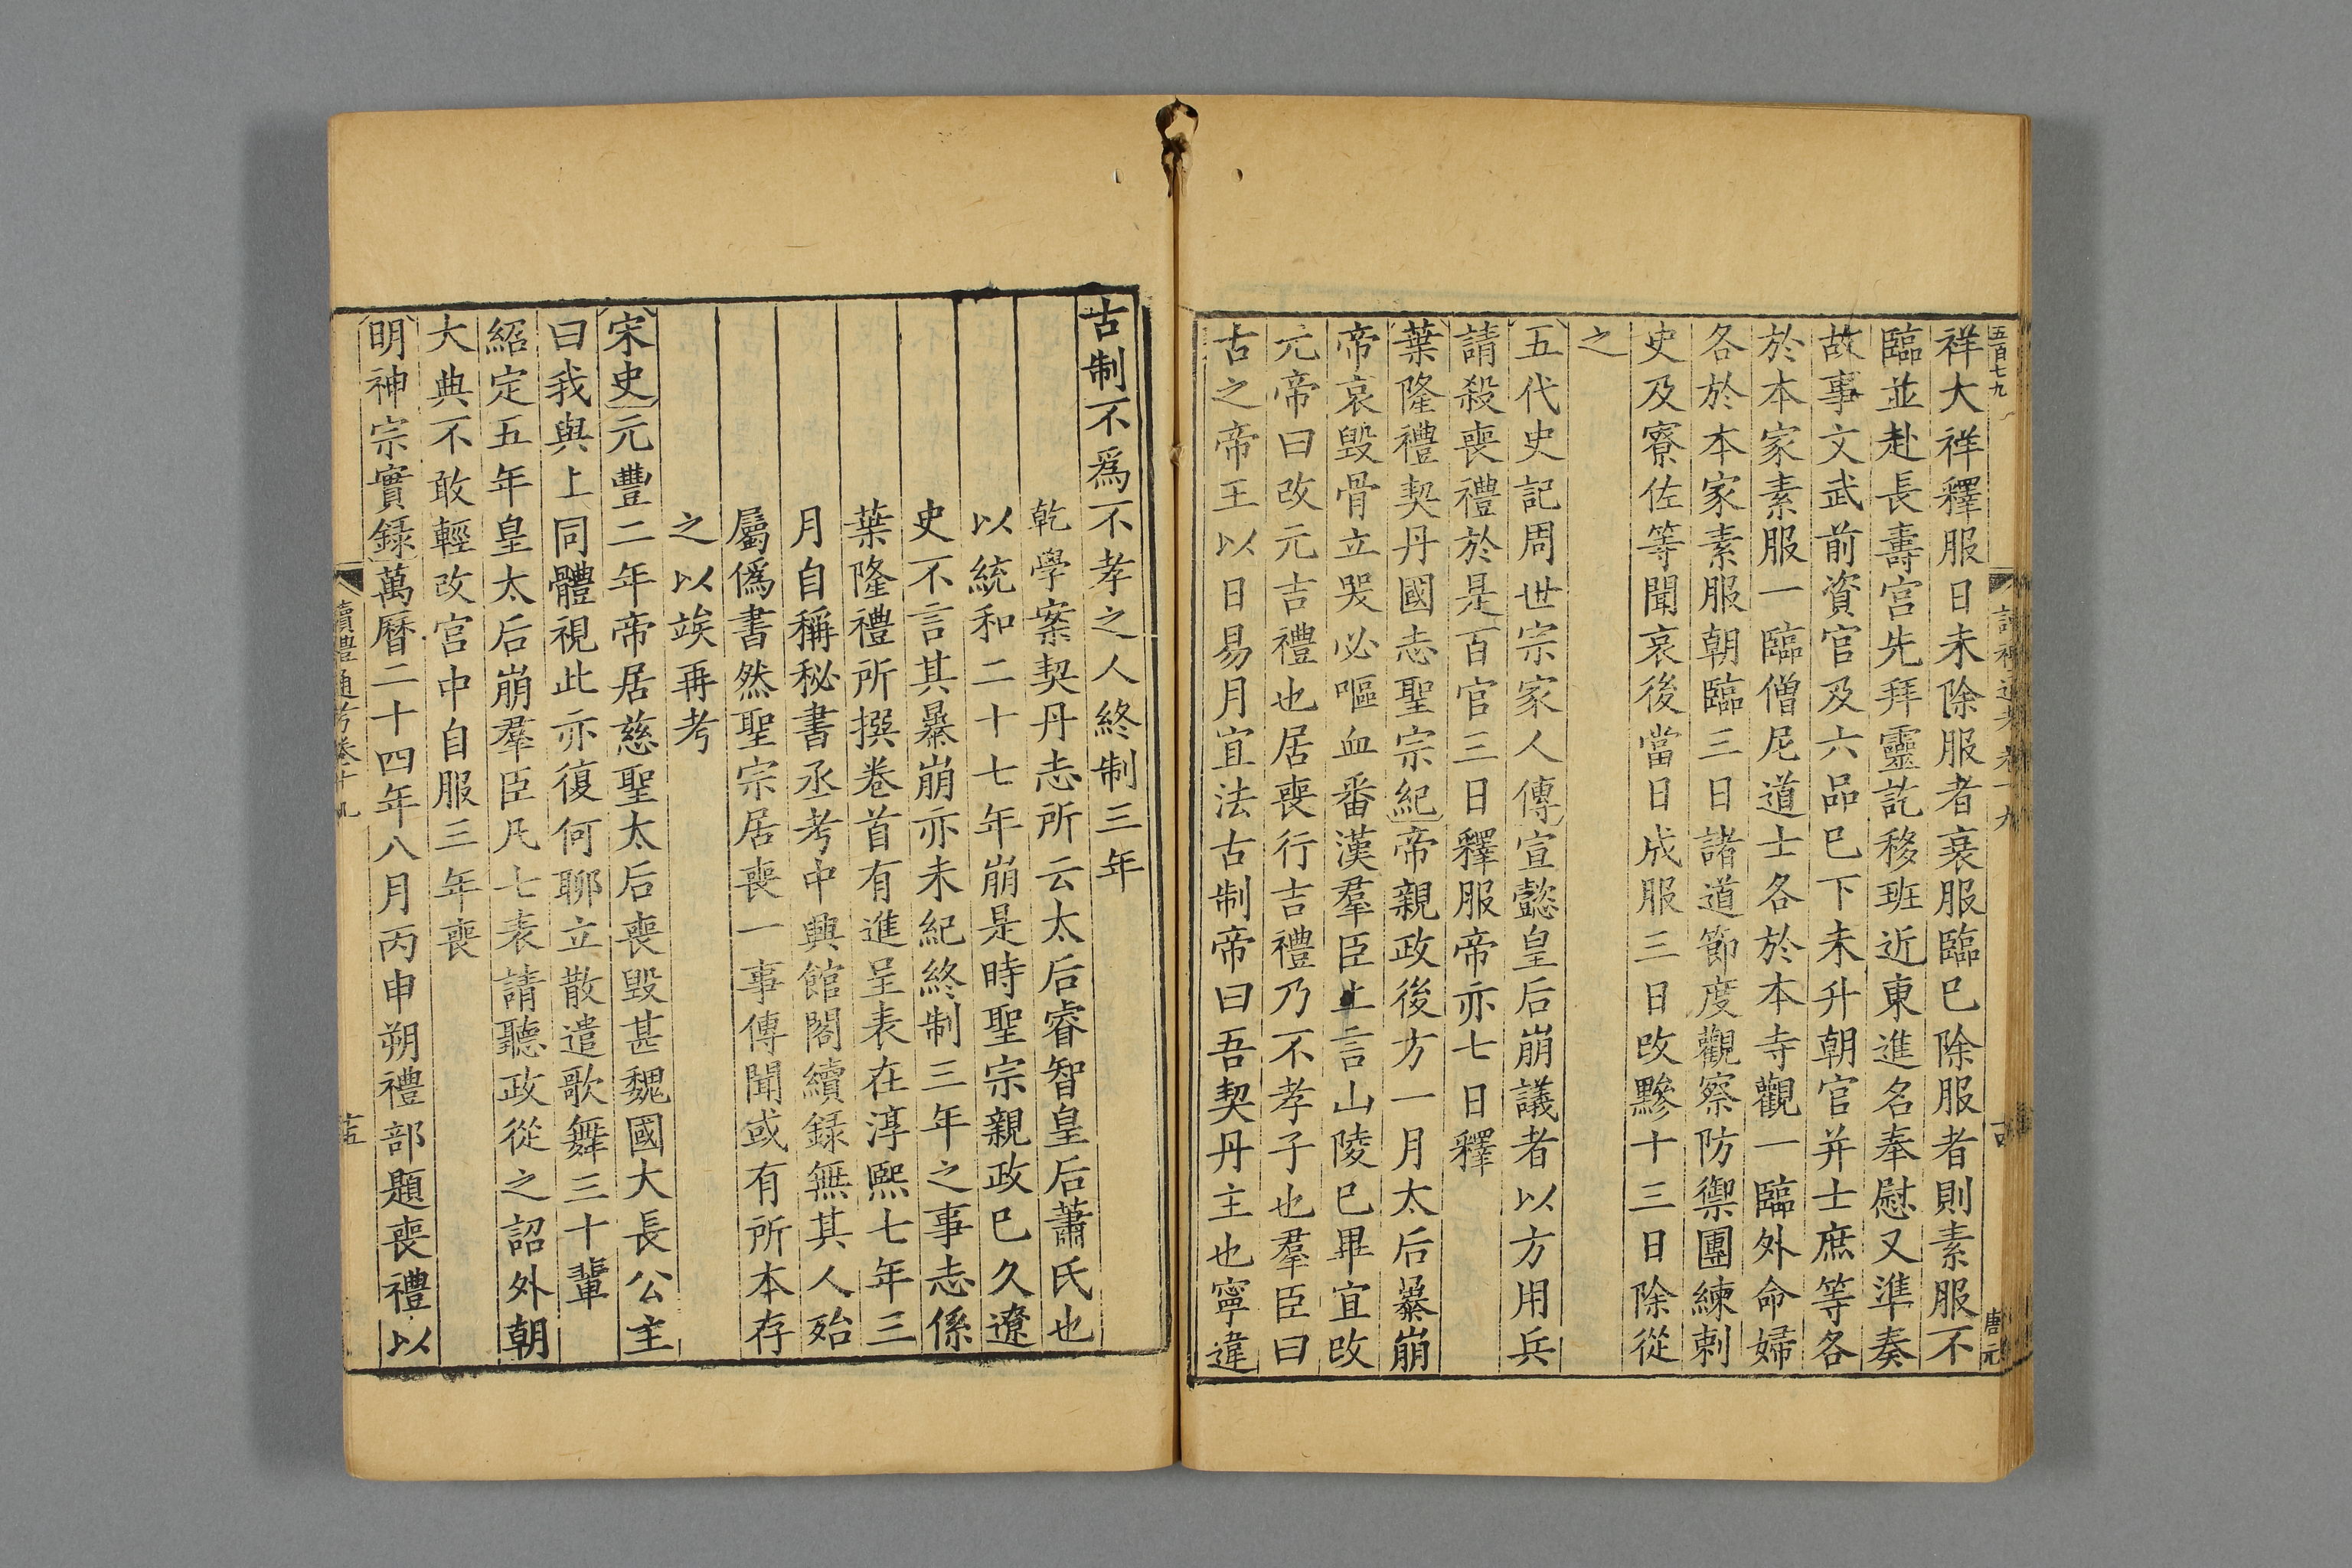 五百七九
讀禮通考卷十九
唐元
祥大祥釋服日未除服者衰服臨巳除服者則素服不
臨並赴長壽宮先拜靈訖移班近東進名奉慰又準奏
故事文武前資官及六品巳下未升朝官并士庶等各
於本家素服一臨僧尼道士各於本寺觀一臨外命婦
各於本家素服朝臨三日諸道節度觀察防禦團練刺
史及寮佐等聞哀後當日成服三日改黲十三日除從
之
五代史記周世宗家人傳宣懿皇后崩議者以方用兵
請殺喪禮於是百官三日釋服帝亦七日釋
葉隆禮契丹國志聖宗紀帝親政後方一月太后暴崩
帝哀毀骨立哭必嘔血番漢羣臣上言山陵巳畢宜改
元帝曰改元吉禮也居喪行吉禮乃不孝子也羣臣曰
古之帝王以日易月宜法古制帝曰吾契丹主也寧違
古制不爲不孝之人終制三年
乾學案契丹志所云太后睿智皇后蕭氏也
以統和二十七年崩是時聖宗親政巳久遼
史不言其暴崩亦未紀終制三年之事志係
葉隆禮所撰卷首有進呈表在淳熙七年三
月自稱秘書丞考中興館閣續録無其人殆
屬僞書然聖宗居喪一事傳聞或有所本存
之以竢再考
宋史元豐二年帝居慈聖太后喪毀甚魏國大長公主
曰我與上同體視此亦復何聊立散遣歌舞三十輩
紹定五年皇太后崩羣臣凡七表請聽政從之詔外朝
大典不敢輕改宮中自服三年喪
明神宗實録萬曆二十四年八月丙申朔禮部題喪禮以
讀禮通考卷十九
十五